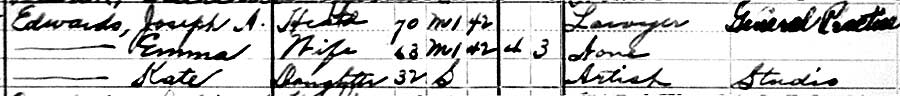 Edwards, Joseph A. Head 70 M1 42 Lawyer General Practice
Emma Wife 63 M1 42 4 3 None
Kate Daughter 32 S Artist Studio